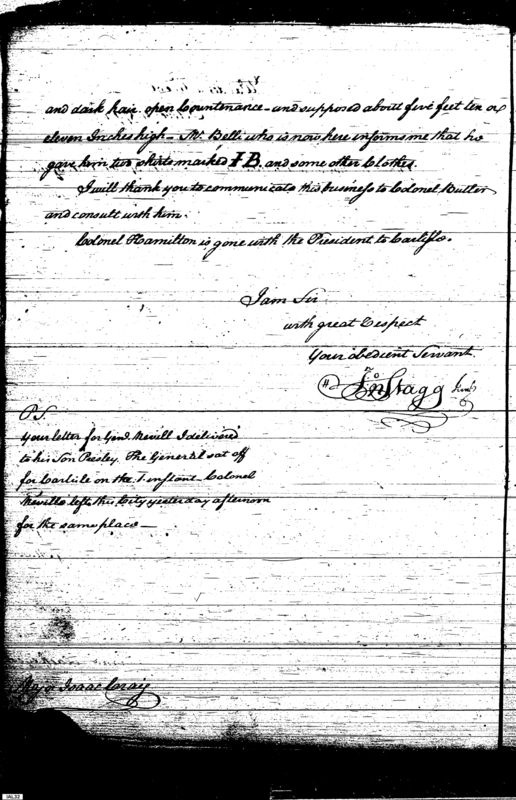 and dark hair open Countenance - and supposed about five feet ten or
eleven Inches high - Mr. Belli who is now here informs me that he
gave him two shirts marked I B. and some other Clothes.
I will thank you to communicate this business to Colonel Butler
and consult with him.
Colonel Hamilton is gone with the President to Carlisle.
I am Sir
with great Respect
Your obedient Servant
Jno Stagg Junr
P.S.
Your letter for Genl. Nevill I delivered
to his Son Presley. The General sat off
for Carlisle on the 1. instant Colonel
Nevills left this City yesterday afternoon
for the same place —
Major Isaac Craig
IAL32